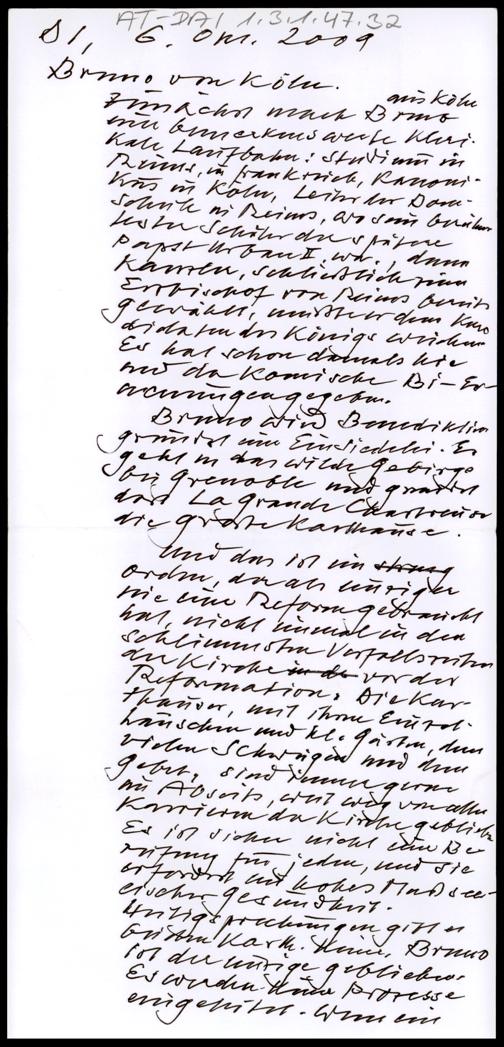 AT-DA1 1.3.1.47.32
DI, 6. Okt. 2009
Bruno von Köln.
aus Köln
Zunächst macht Bruno
eine bemerkenswerte kleri-
kale Laufbahn: Studium in
Reims, in Frankreich, Kanoni-
kus in Köln, Leiter der Dom-
schule in Reims, wo sein berühm
tester Schüler der spätere
Papst Urban II. war, dann
Kanzler, schließlich zum
Erzbischof von Reims bereits
gewählt, mußte er dem Kan
didaten des Königs weichen.
Es hat schon damals hie
und da komische Bi-Er-
nennungen gegeben.
Bruno wird Benediktin
gründet eine Einsiedelei. Er
geht in das wilde Gebirge
bei Grenoble und gründet
dort La Grande Chartreuse
die große Karthause.
Und das ist ein streng
Orden, der als einziger
nie eine Reform gebraucht
hat, nicht einmal in den
schlimmsten Verfallszeiten
der Kirche in der vor der
Reformation. Die Kar-
thäuser, mit ihren Einzel-
häuschen und kl. Gärten, dem
vielen Schweigen und dem
Gebet, sind immer gerne
im Abseits, weit weg von allen
Karrieren der Kirche geblieben
Es ist sicher nicht eine Be-
rufung für jeden, und sie
erfordert ein hohes Maß see-
lischer Gesundheit.
Heiligsprechungen gibt es
bei den Karth. keine, Bruno
ist der einzige geblieben.
Es werden keine Prozesse
eingeleitet. Wenn ein